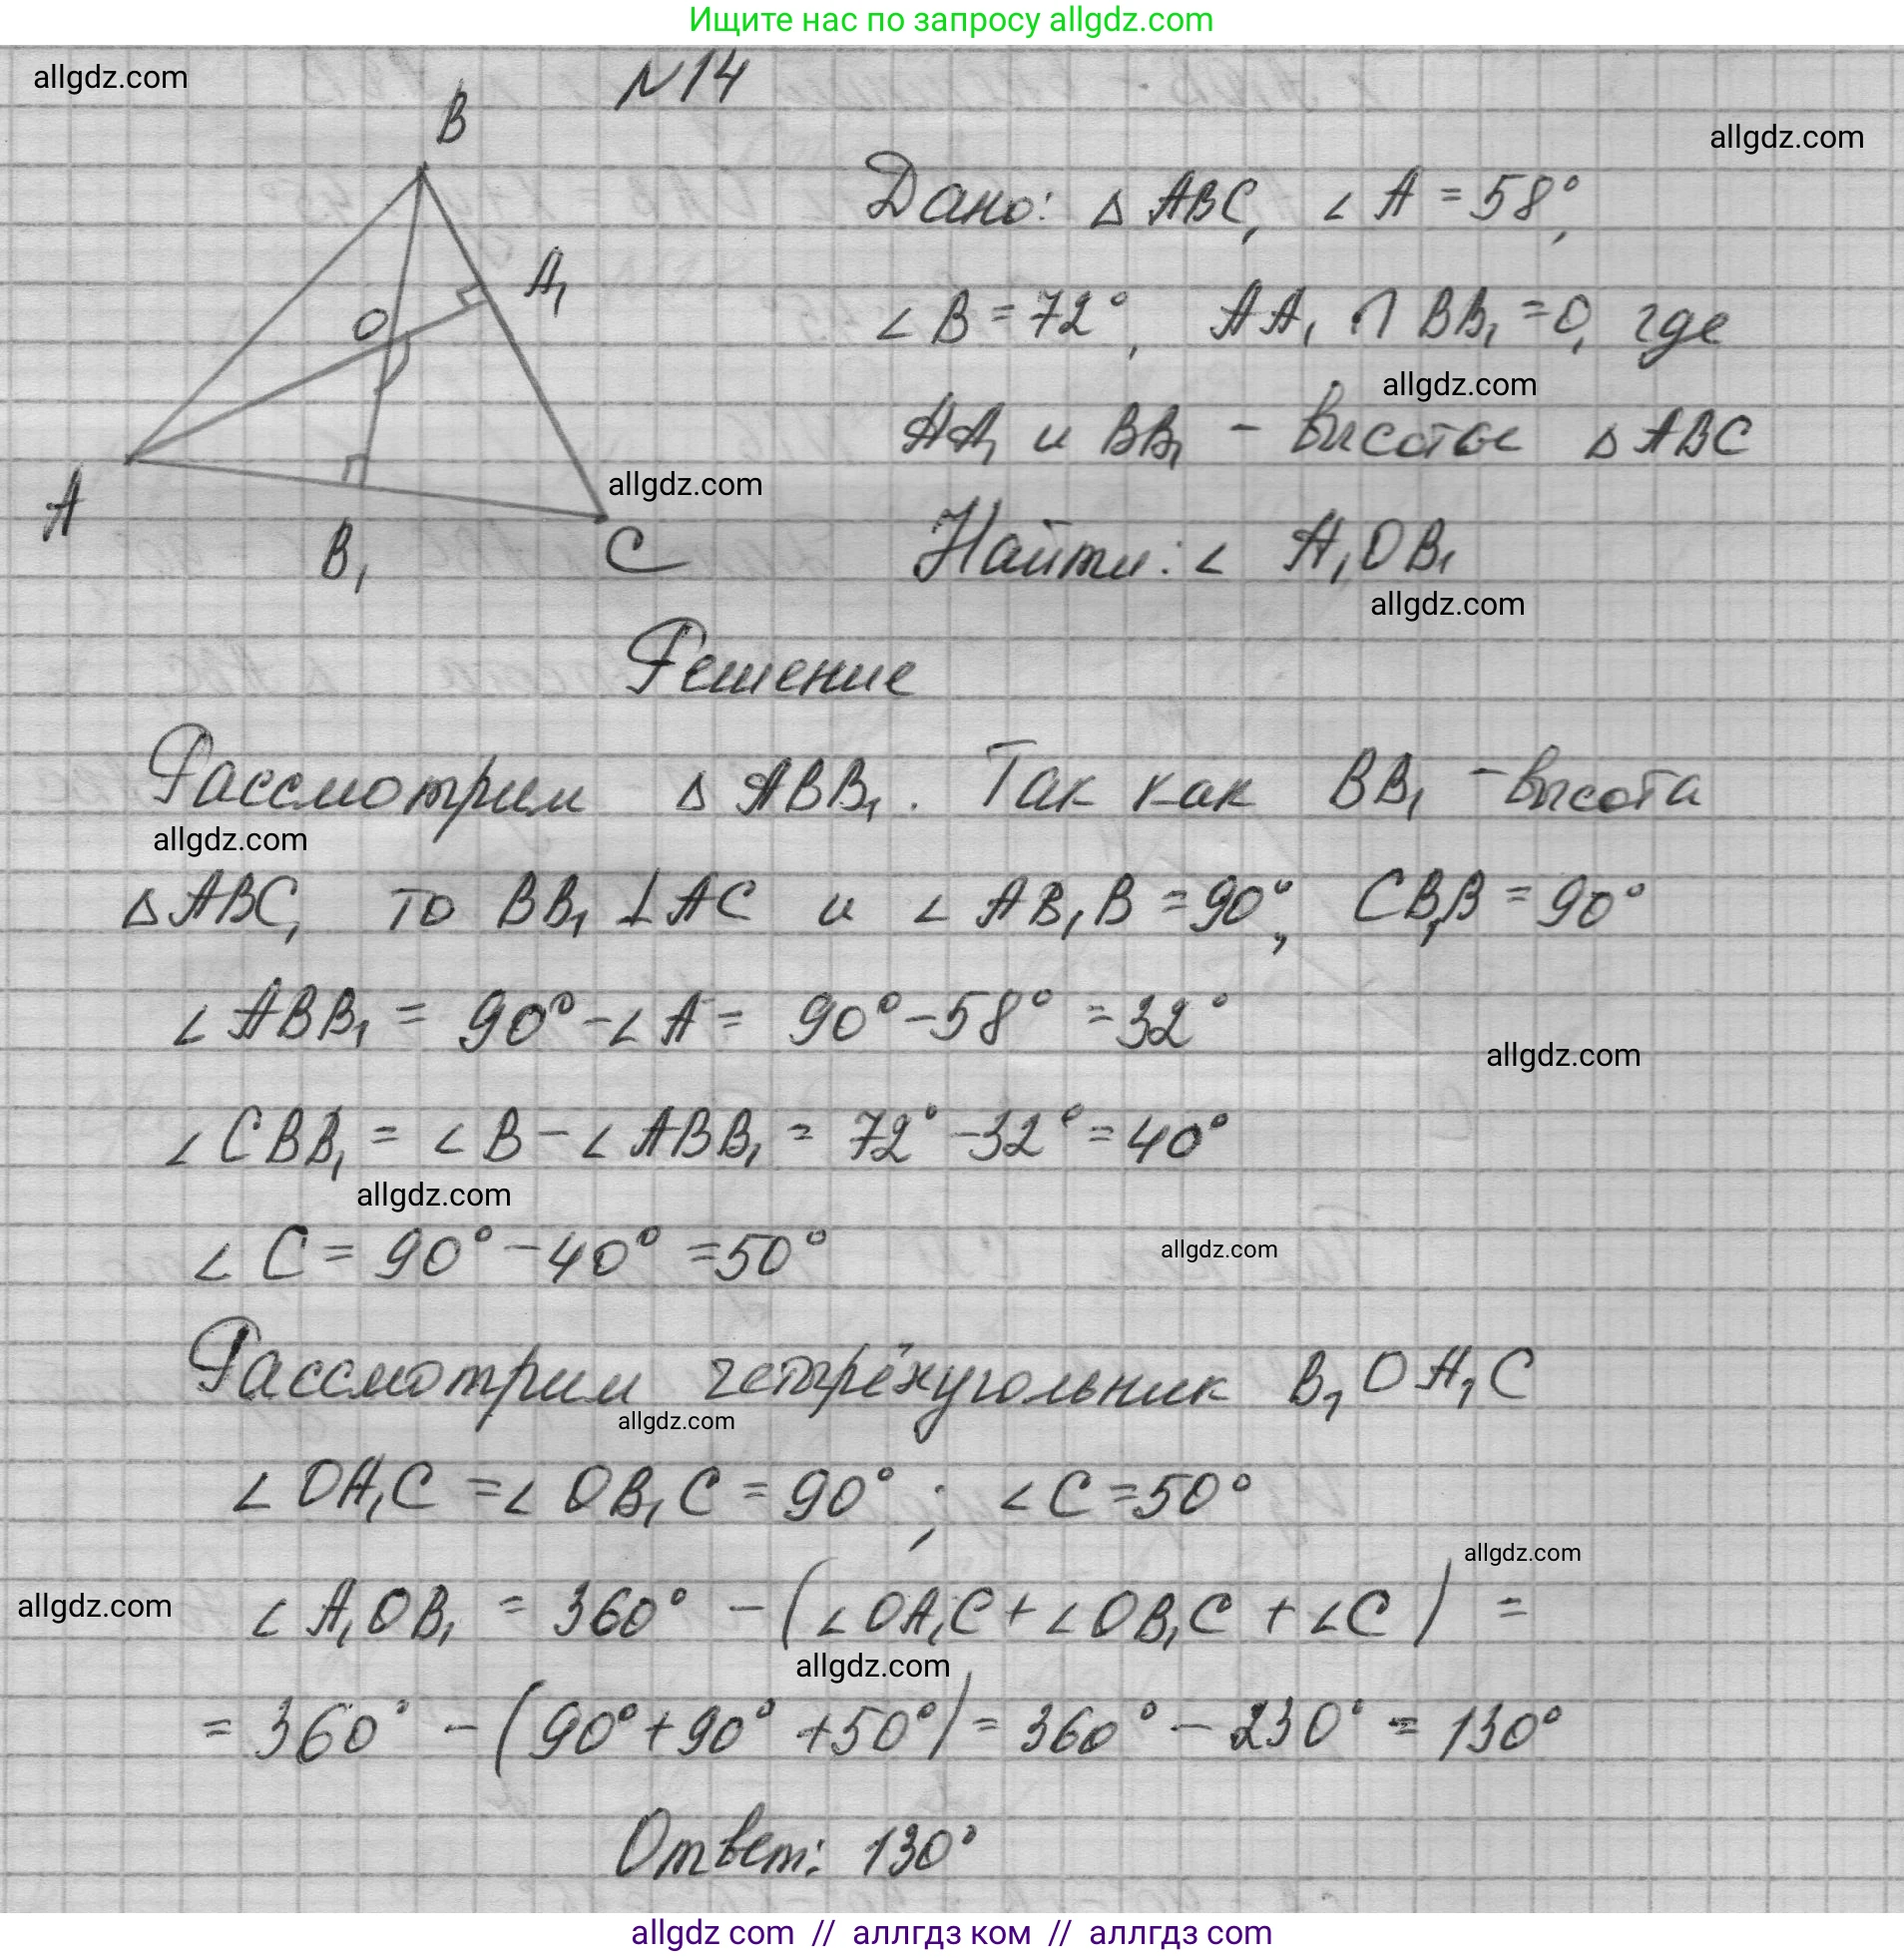 Ищите нас по запросу allgdz.com
allgdz.com
N14
allgdz.com
B
Дано: △ ABC, ∠ A = 58°,
A₁
O
∠ B = 72°, AA₁ ∩ BB₁ = O, где
allgdz.com
AA₁ и BB₁ - высоты △ ABC
allgdz.com
A
B₁
C
Найти: ∠ A₁OB₁
allgdz.com
Решение
Рассмотрим △ ABB₁. Так как BB₁ - высота
allgdz.com
△ ABC, то BB₁ ⊥ AC и ∠ AB₁B = 90°, CB₁B = 90°
∠ ABB₁ = 90° - ∠ A = 90° - 58° = 32°
allgdz.com
∠ CBB₁ = ∠ B - ∠ ABB₁ = 72° - 32° = 40°
allgdz.com
∠ C = 90° - 40° = 50°
allgdz.com
Рассмотрим четырёхугольник B₁OA₁C
allgdz.com
∠ OA₁C = ∠ OB₁C = 90°; ∠ C = 50°
allgdz.com
allgdz.com
∠ A₁OB₁ = 360° - (∠ OA₁C + ∠ OB₁C + ∠ C) =
allgdz.com
= 360° - (90° + 90° + 50°) = 360° - 230° = 130°
Ответ: 130°
allgdz com // аллгдз ком // аллгдз com